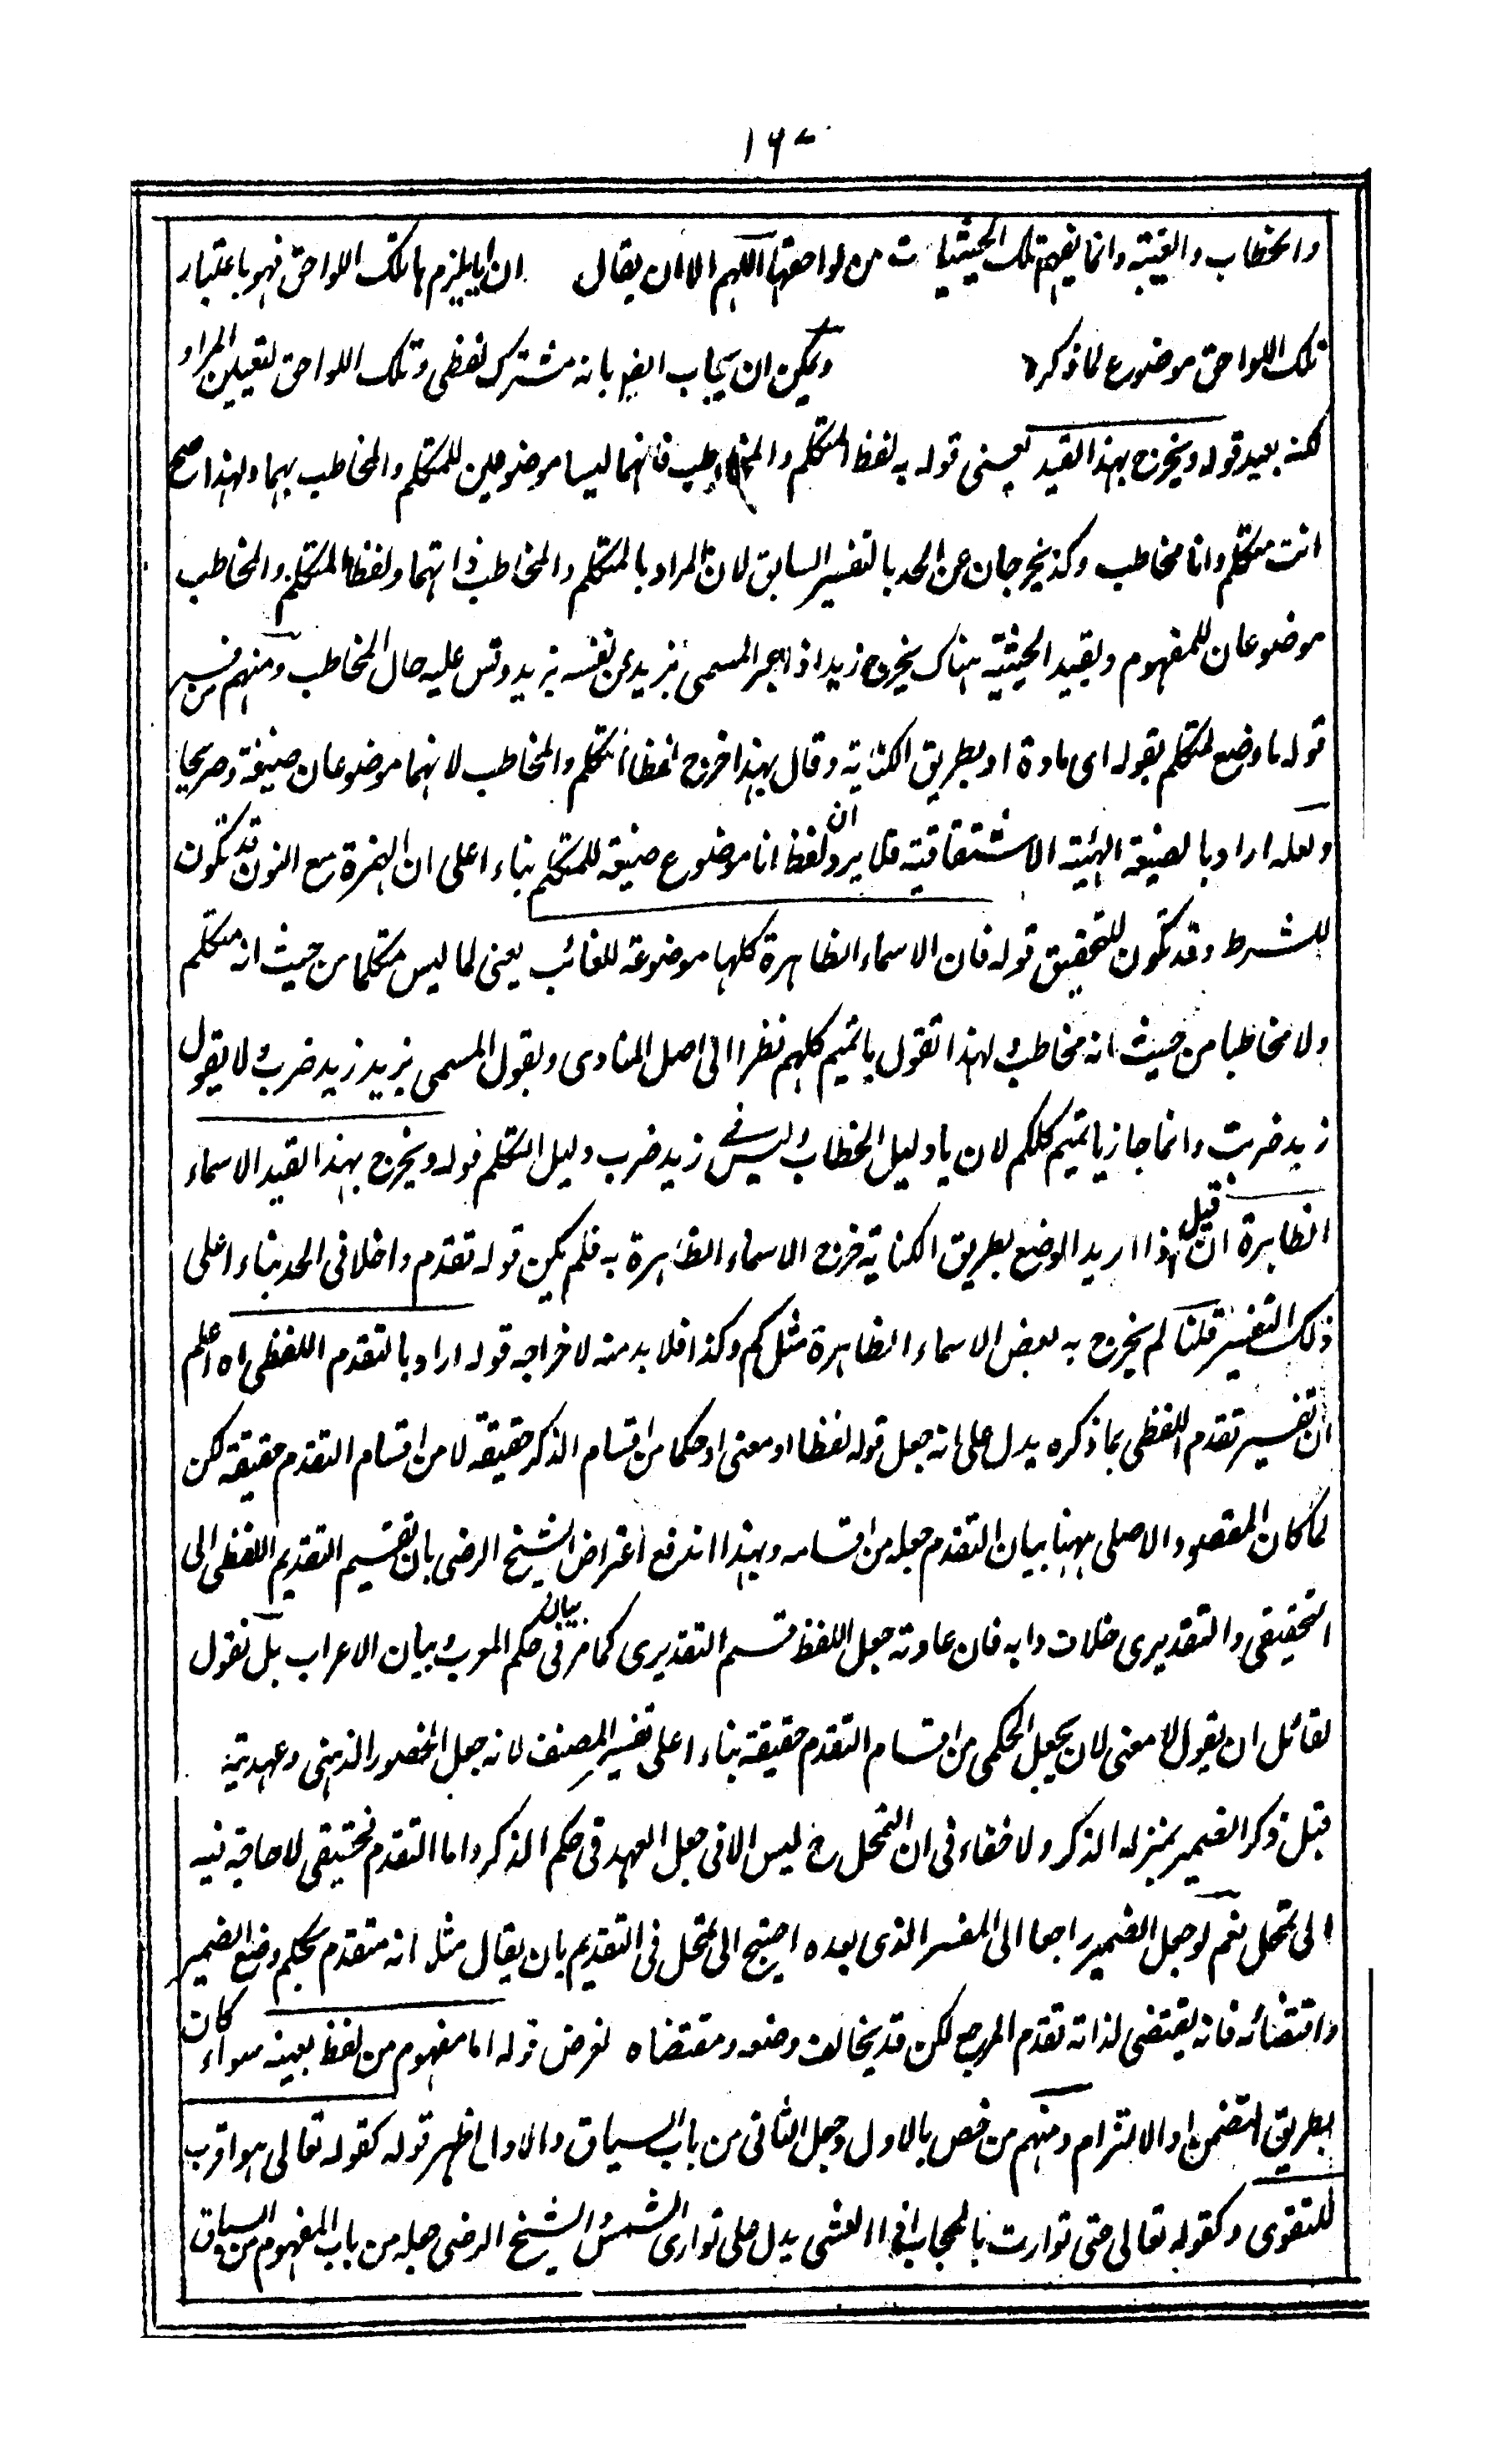 ١٦٧
والخطاب والغيبة وانما يفهم تلك الحيثيات من لواحقها اللهم الا ان يقال ان ايا يلزمها تلك اللواحق فهو باعتبار
تلك اللواحق موضوع لما ذكره ويمكن ان يجاب ايضا بانه مشترك لفظى وتلك اللواحق لتعيين المراد
لكنه بعيد قوله ويخرج بهذا القيد يعنى قوله به لفظ المتكلم والمخاطب فانهما ليسا موضوعين للمتكلم والمخاطب بهما ولهذا صح
انت متكلم وانا مخاطب وكذا يخرجان عن الحد بالتفسير السابق لان المراد بالمتكلم والمخاطب ذاتهما ولفظا المتكلم والمخاطب
موضوعان للمفهوم وبقيد الحيثية هناك يخرج زيد اذا عبر المسمى بزيد عن نفسه بزيد وقس عليه حال المخاطب ومنهم من فسر
قوله ما وضع لمتكلم بقوله اى مادة او بطريق الكناية وقال بهذا خرج لفظا المتكلم والمخاطب لانهما موضوعان صيغة وصريحا
ولعله اراد بالصيغة الهئية الاشتقاقية فلا يرد ان لفظ انا موضوع صيغة للمتكلم بناء اعلى ان الهمزة مع النون قد تكون
للشرط وقد تكون للتحقيق قوله فان الاسماء الظاهرة كلها موضوعة للغائب يعنى لما ليس متكلما من حيث انه متكلم
ولا مخاطبا من حيث انه مخاطب ولهذا تقول يا تميم كلهم نظرا الى اصل المنادى ويقول المسمى بزيد زيد ضرب ولا يقول
زيد ضربت وانما جاز يا تميم كلكم لان يا دليل الخطاب وليس فى زيد ضرب دليل التكلم قوله ويخرج بهذا القيد الاسماء
الظاهرة ان قيل اذا اريد الوضع بطريق الكناية خرج الاسماء الظاهرة به فلم يكن قوله تقدم داخلا فى الحد بناء اعلى
ذلك التفسير قلنا لم يخرج به بعض الاسماء الظاهرة مثل كم وكذا فلا بد منه لاخراجه قوله اراد بالتقدم اللفظى اه اعلم
ان تفسير تقدم اللفظى بما ذكره يدل على انه جعل قوله لفظا او معنى او حكما من اقسام الذكر حقيقة لا من اقسام التقدم حقيقة لكن
لما كان المقصود الاصلى ههنا بيان التقدم جعله من اقسامه وبهذا اندفع اعتراض الشيخ الرضى بان تقسيم التقديم اللفظى الى
التحقيقى والتقديرى خلاف دابه فان عادته جعل اللفظ قسيم التقديرى كما مر فى بيان حكم المعرب وبيان الاعراب بل نقول
لقائل ان يقول لا معنى لان يجعل الحكمى من اقسام التقدم حقيقة بناء اعلى تفسير المصنف لانه جعل الحضور الذهنى وعهديته
قبل ذكر الضمير بمنزلة الذكر ولا خفاء فى ان التمحل ح ليس الا فى جعل العهد فى حكم الذكر واما التقدم فحقيقى لا حاجة فيه
الى تمحل نعم لو جعل الضمير راجعا الى المفسر الذى بعده احتيج الى تمحل فى التقديم بان يقال مثلا انه متقدم بحكم وضع الضمير
واقتضائه فانه يقتضى لذاته تقدم المرجع لكن قد يخالف وضعه ومقتضاه لغرض قوله اما مفهوم من لفظ بعينه سواء كان
بطريق التضمن او الالتزام ومنهم من خص بالاول وجعل الثانى من باب السياق والاول اظهر قوله كقوله تعالى هو اقرب
للتقوى وكقوله تعالى حتى توارت بالحجاب اذ العشى يدل على توارى الشمس والشيخ الرضى جعله من باب المفهوم من السياق